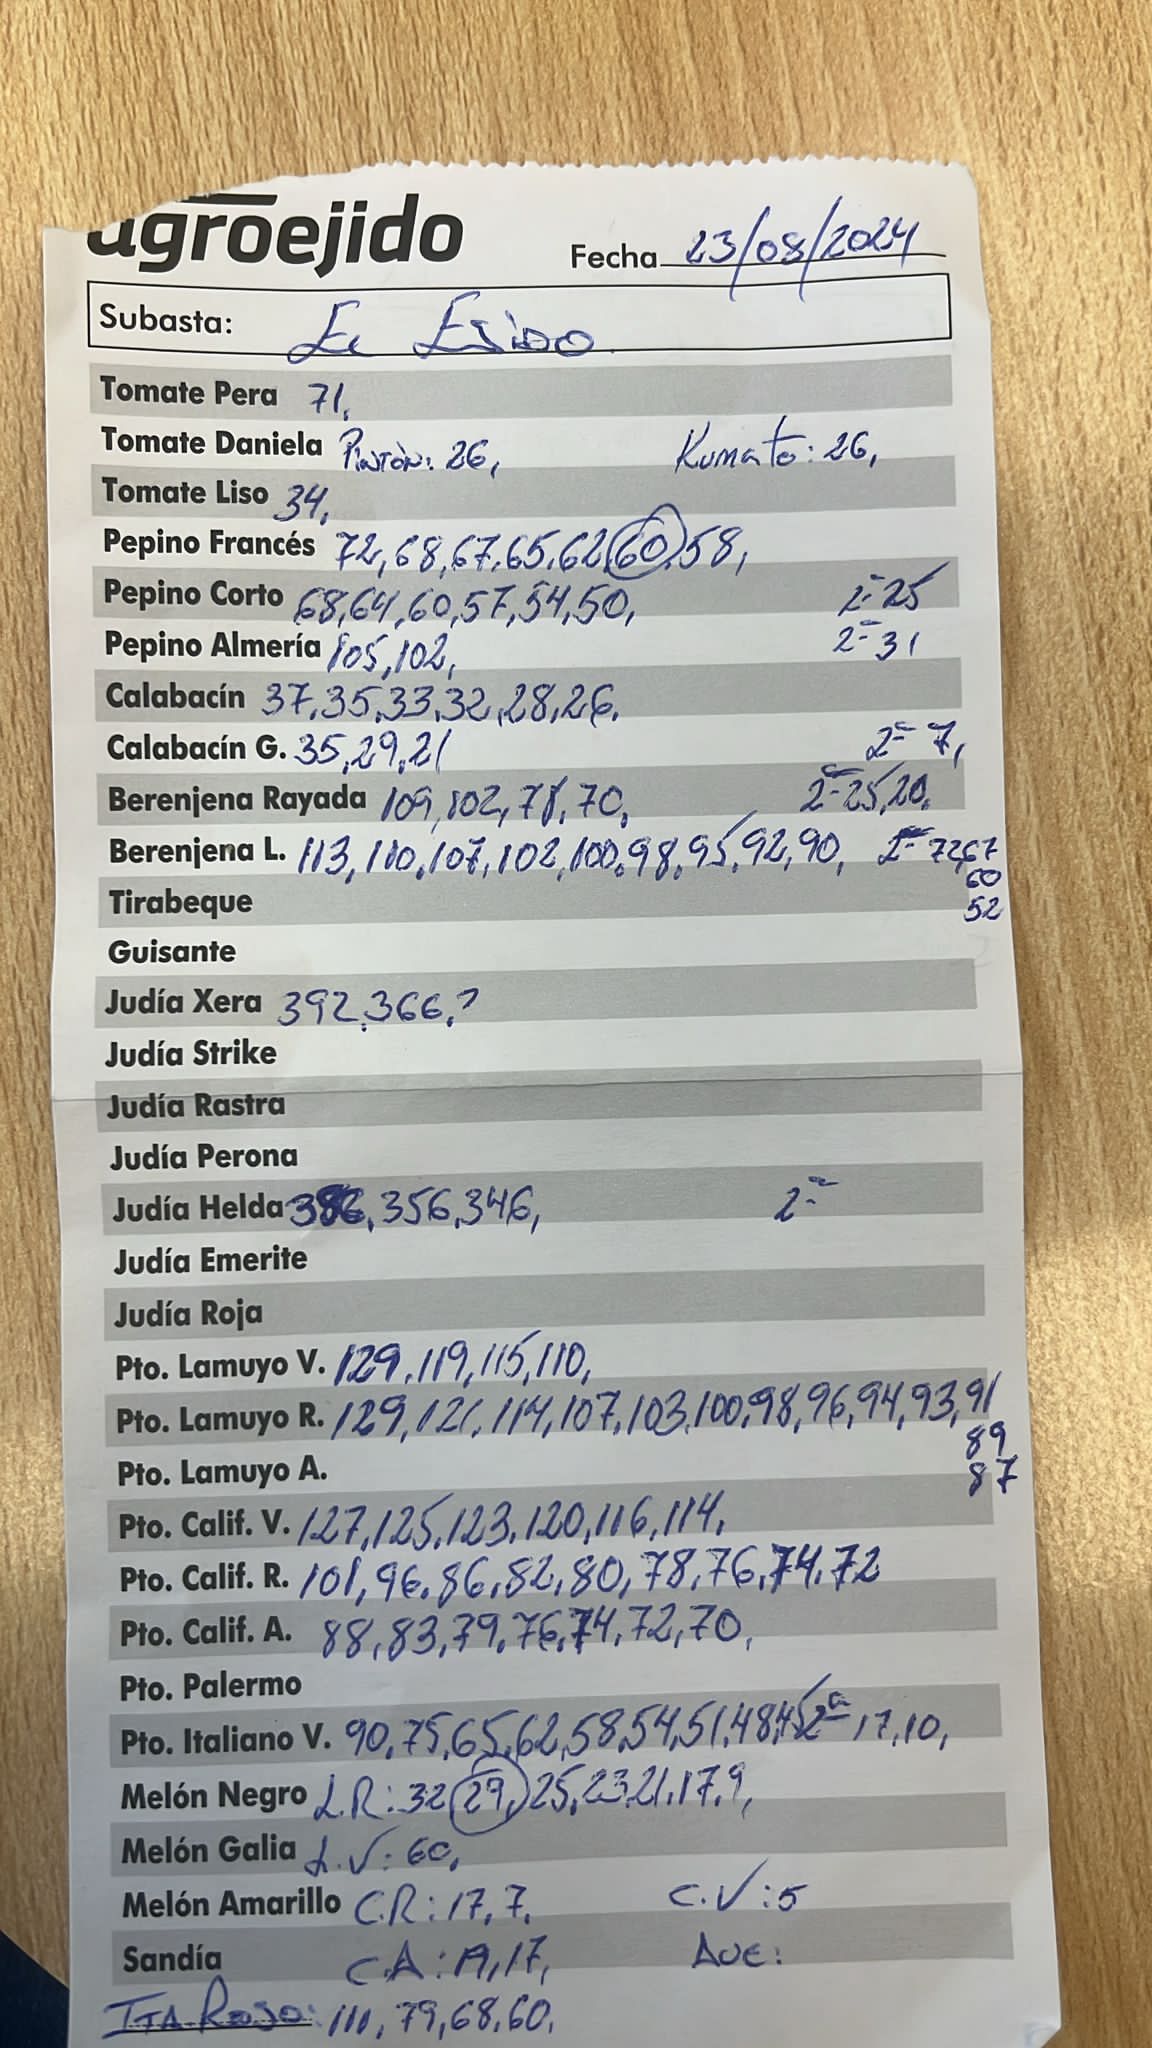 agroejido
Fecha 23/08/2024
Subasta: El Ejido
Tomate Pera 71,
Tomate Daniela Pintón: 26, Kumato: 26,
Tomate Liso 34,
Pepino Francés 72, 68, 67, 65, 62, 60, 58,
Pepino Corto 68, 64, 60, 57, 54, 50, 2ª 25
Pepino Almería 105, 102, 2ª 31
Calabacín 37, 35, 33, 32, 28, 26,
Calabacín G. 35, 29, 21 2ª 7,
Berenjena Rayada 109, 102, 78, 70, 2ª 25, 20,
Berenjena L. 113, 110, 107, 102, 100, 98, 95, 92, 90, 2ª 72, 67
60
Tirabeque 52
Guisante
Judía Xera 392, 366, ?
Judía Strike
Judía Rastra
Judía Perona
Judía Helda 356, 346, 2ª
Judía Emerite
Judía Roja
Pto. Lamuyo V. 129, 119, 115, 110,
Pto. Lamuyo R. 129, 121, 114, 107, 103, 100, 98, 96, 94, 93, 91
89
Pto. Lamuyo A. 87
Pto. Calif. V. 127, 125, 123, 120, 116, 114,
Pto. Calif. R. 101, 96, 86, 82, 80, 78, 76, 74, 72
Pto. Calif. A. 88, 83, 79, 76, 74, 72, 70,
Pto. Palermo
Pto. Italiano V. 90, 75, 65, 62, 58, 54, 51, 48, 45 2ª 17, 10,
Melón Negro L.R: 32, 29, 25, 23, 21, 17, 9,
Melón Galia L.V: 60,
Melón Amarillo C.R: 17, 7, C.V: 5
Sandía C.A: 19, 17, AUE:
ITA. ROJO: 111, 79, 68, 60,